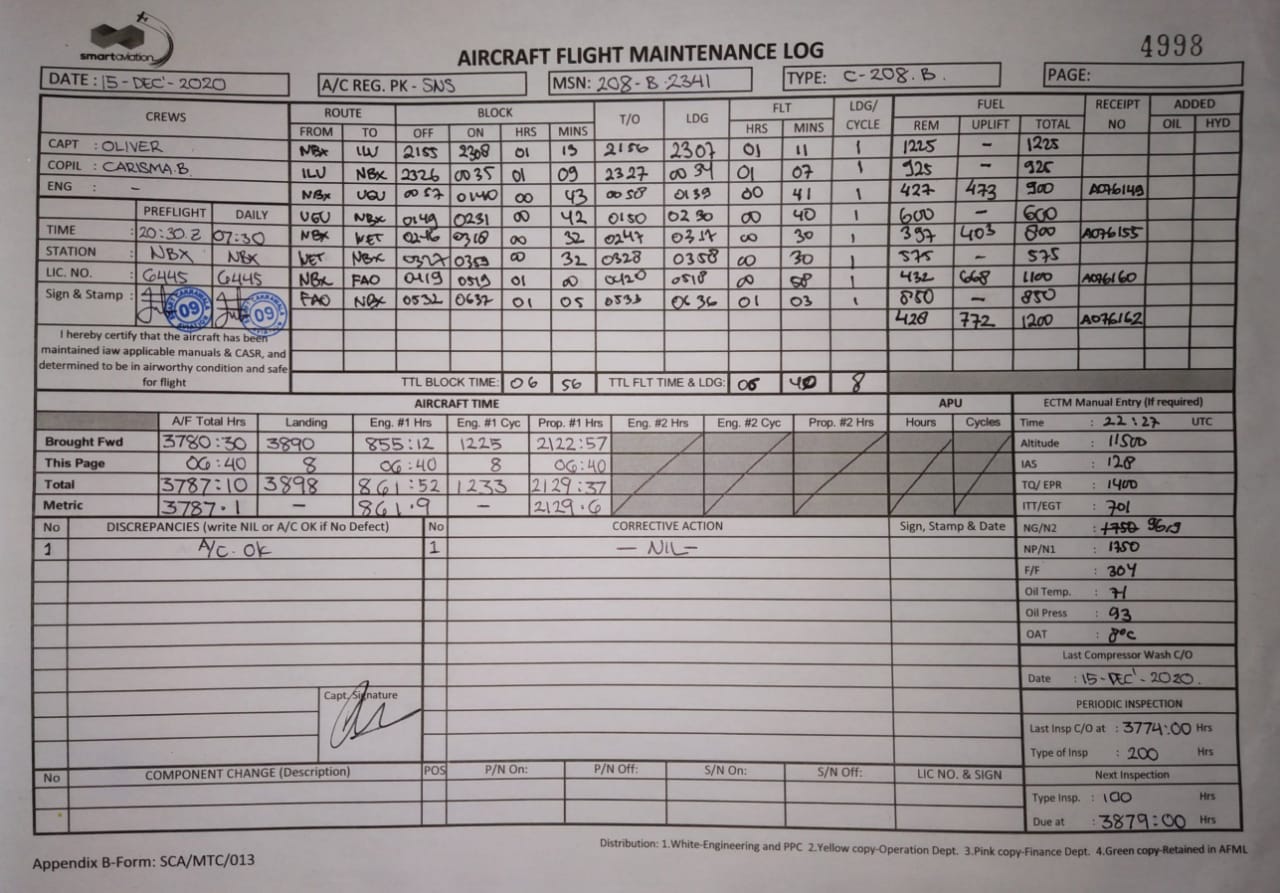 smartaviation
AIRCRAFT FLIGHT MAINTENANCE LOG
4998
DATE : 15-DEC'-2020 A/C REG. PK - SNS MSN: 208-B-2341 TYPE: C-208.B. PAGE:
CREWS ROUTE BLOCK T/O LDG FLT LDG/ CYCLE FUEL RECEIPT NO ADDED
FROM TO OFF ON HRS MINS HRS MINS REM UPLIFT TOTAL OIL HYD
CAPT : OLIVER NBX ILU 2155 2308 01 13 2156 2307 01 11 1 1225 - 1225
COPIL : CARISMA.B. ILU NBX 2326 0035 01 09 2327 0034 01 07 1 925 - 925
ENG : - NBX UGU 0057 0140 00 43 0058 0139 00 41 1 427 473 900 A076149
PREFLIGHT DAILY UGU NBX 0149 0231 00 42 0150 0230 00 40 1 600 - 600
TIME : 20:30.Z 07:30 NBX WET 0246 0318 00 32 0247 0317 00 30 1 397 403 800 A076155
STATION : NBX NBX WET NBX 0327 0359 00 32 0328 0358 00 30 1 575 - 575
LIC. NO. : 6445 6445 NBX FAO 0419 0519 01 00 0420 0518 00 58 1 432 668 1100 A076160
Sign & Stamp : 09 09 FAO NBX 0532 0637 01 05 0533 0636 01 03 1 850 - 850
428 772 1200 A076162
I hereby certify that the aircraft has been
maintained iaw applicable manuals & CASR, and
determined to be in airworthy condition and safe
for flight
TTL BLOCK TIME: 06 56 TTL FLT TIME & LDG: 06 40 8
AIRCRAFT TIME APU ECTM Manual Entry (If required)
A/F Total Hrs Landing Eng. #1 Hrs Eng. #1 Cyc Prop. #1 Hrs Eng. #2 Hrs Eng. #2 Cyc Prop. #2 Hrs Hours Cycles Time : 22:27 UTC
Brought Fwd 3780:30 3890 855:12 1225 2122:57 Altitude : 11500
This Page 06:40 8 06:40 8 06:40 IAS : 128
Total 3787:10 3898 861:52 1233 2129:37 TQ/ EPR : 1400
Metric 3787.1 - 861.9 - 2129.6 ITT/EGT : 701
No DISCREPANCIES (write NIL or A/C OK if No Defect) No CORRECTIVE ACTION Sign, Stamp & Date NG/N2 : 1750 96.9
1 A/C. OK 1 — NIL — NP/N1 : 1750
F/F : 304
Oil Temp. : 71
Oil Press : 93
OAT : 8°C
Last Compressor Wash C/O
Date : 15-DEC'-2020.
Capt, Signature
PERIODIC INSPECTION
Last Insp C/O at : 3774:00 Hrs
Type of Insp : 200 Hrs
No COMPONENT CHANGE (Description) POS P/N On: P/N Off: S/N On: S/N Off: LIC NO. & SIGN Next Inspection
Type Insp. : 100 Hrs
Due at : 3879:00 Hrs
Distribution: 1.White-Engineering and PPC 2.Yellow copy-Operation Dept. 3.Pink copy-Finance Dept. 4.Green copy-Retained in AFML
Appendix B-Form: SCA/MTC/013